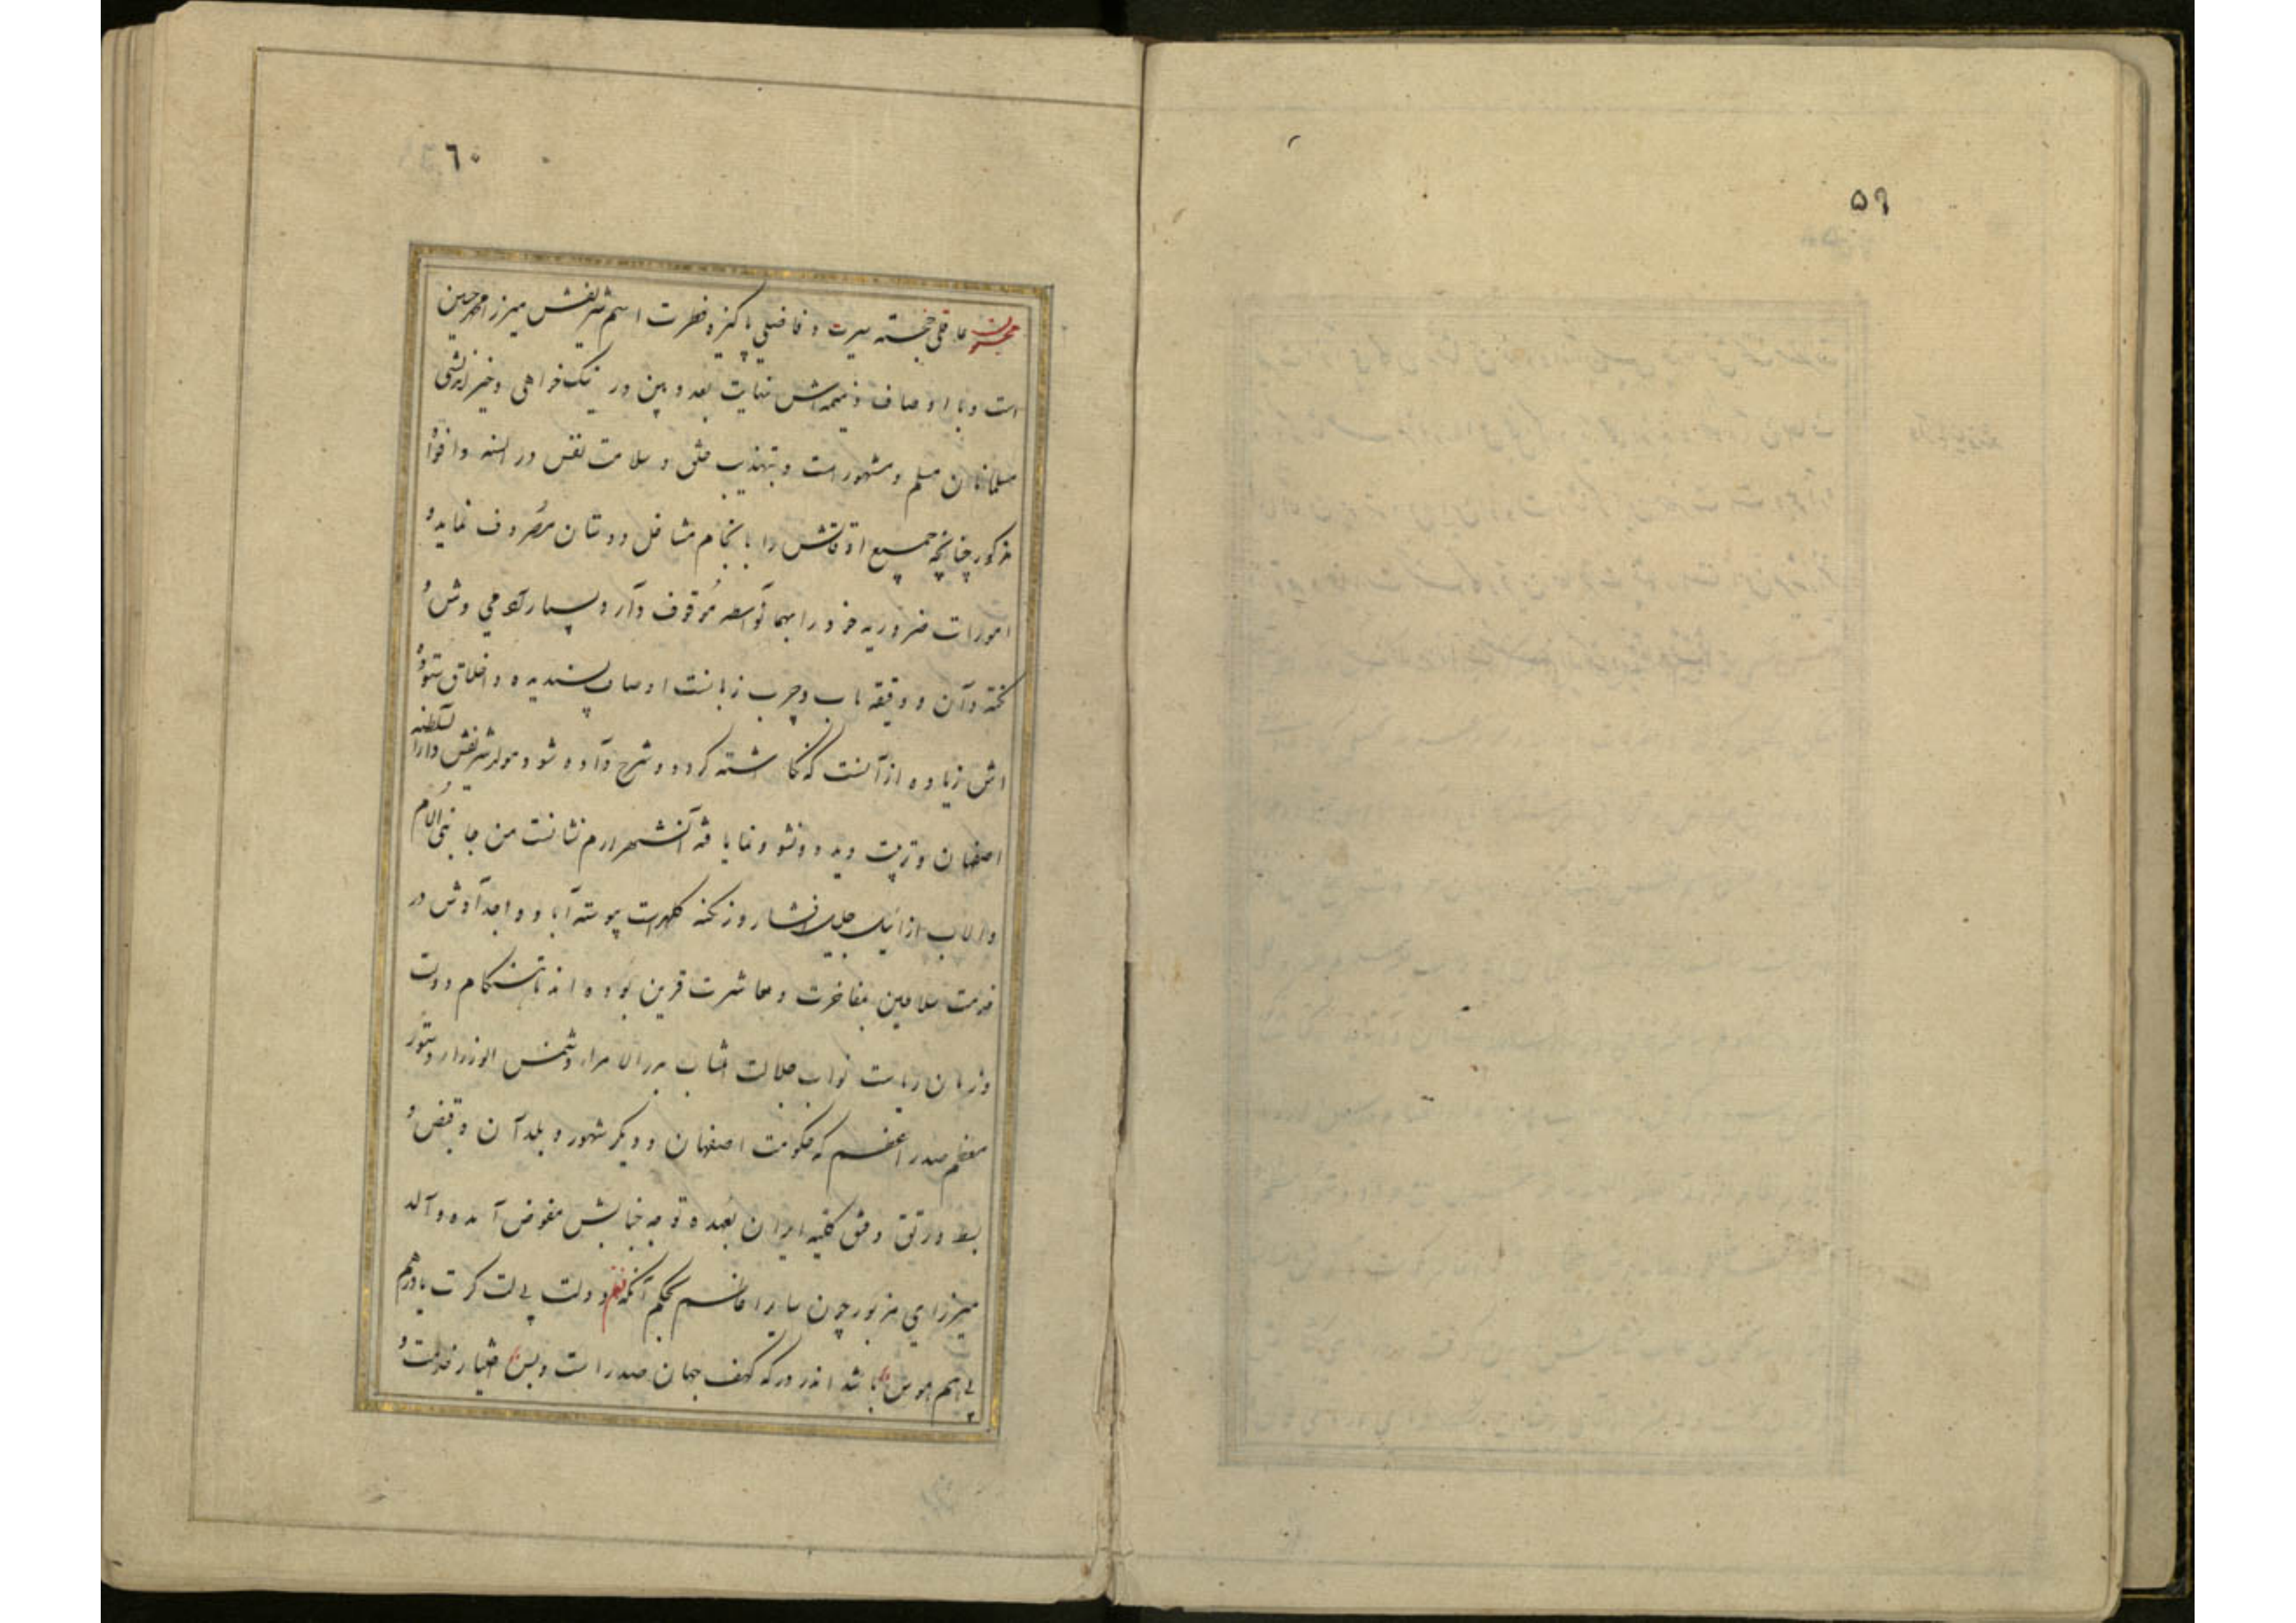 ۵۹
۶۰
محزون عاقلی خجسته سیرت و فاضلی پاکیزه فطرت اسم شریفش میرزا محمد حسین
است و با اوصاف ذمیمه‌اش نهایت بعد و بین در نیک خواهی و خیر اندیشی
مسلمانان مسلم و مشهور است و بتهذیب خلق و سلامت نفس در السنه و افواه
مذکور چنانچه جمیع اوقاتش را بانجام مشاغل دوستان مصروف نماید و
امورات ضروریه خود را موقوف دارد بسیار آدمی وش و
نکته دان و دقیقه یاب و چرب زبانست اوصاف پسندیده و اخلاق ستوده
اش زیاده از آنست که نگاشته گردد و شرح داده شود و مولد شریفش دارالسلطنه
اصفهان و تربیت دیده و نشو و نما یافته آنشهر ارم نشانست من جانبی الام
والاب از ایل جلیل افشار و زنکنه پیوسته آبا و اجدادش در
خدمت سلاطین بمفاخرت و معاشرت قرین بوده اند تا هنگام دولت
و زمان ریاست نواب جلالت انتساب بدر الامراء و شمس الوزراء دستور
معظم صدر اعظم که حکومت اصفهان و دیگر شهور و بلدان و قبض و
بسط و رتق و فتق کلیه ایران بعهده توجه جنابش مفوض آمده والد
میرزای مزبور چون سایر اعاظم بحکم آنکه نظم دولت بی لت کرت باد
باشد اندر که کهف جهان صدر است و بس اختیار خدمت و